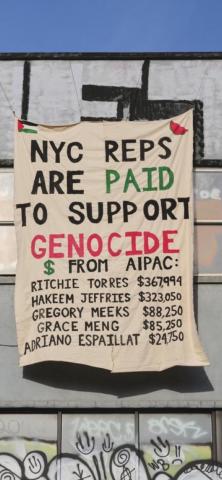 NYC REPS
ARE PAID
TO SUPPORT
GENOCIDE
$ FROM AIPAC:
RITCHIE TORRES $367,994
HAKEEM JEFFRIES $323,050
GREGORY MEEKS $88,250
GRACE MENG $85,250
ADRIANO ESPAILLAT $24,750